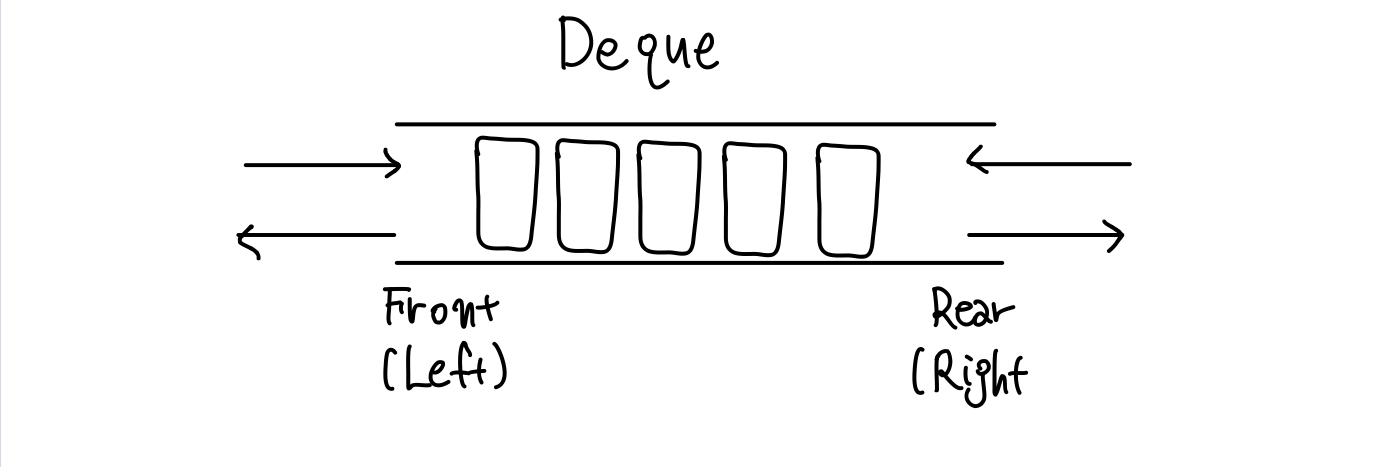 Deque
Front
(Left)
Rear
(Right